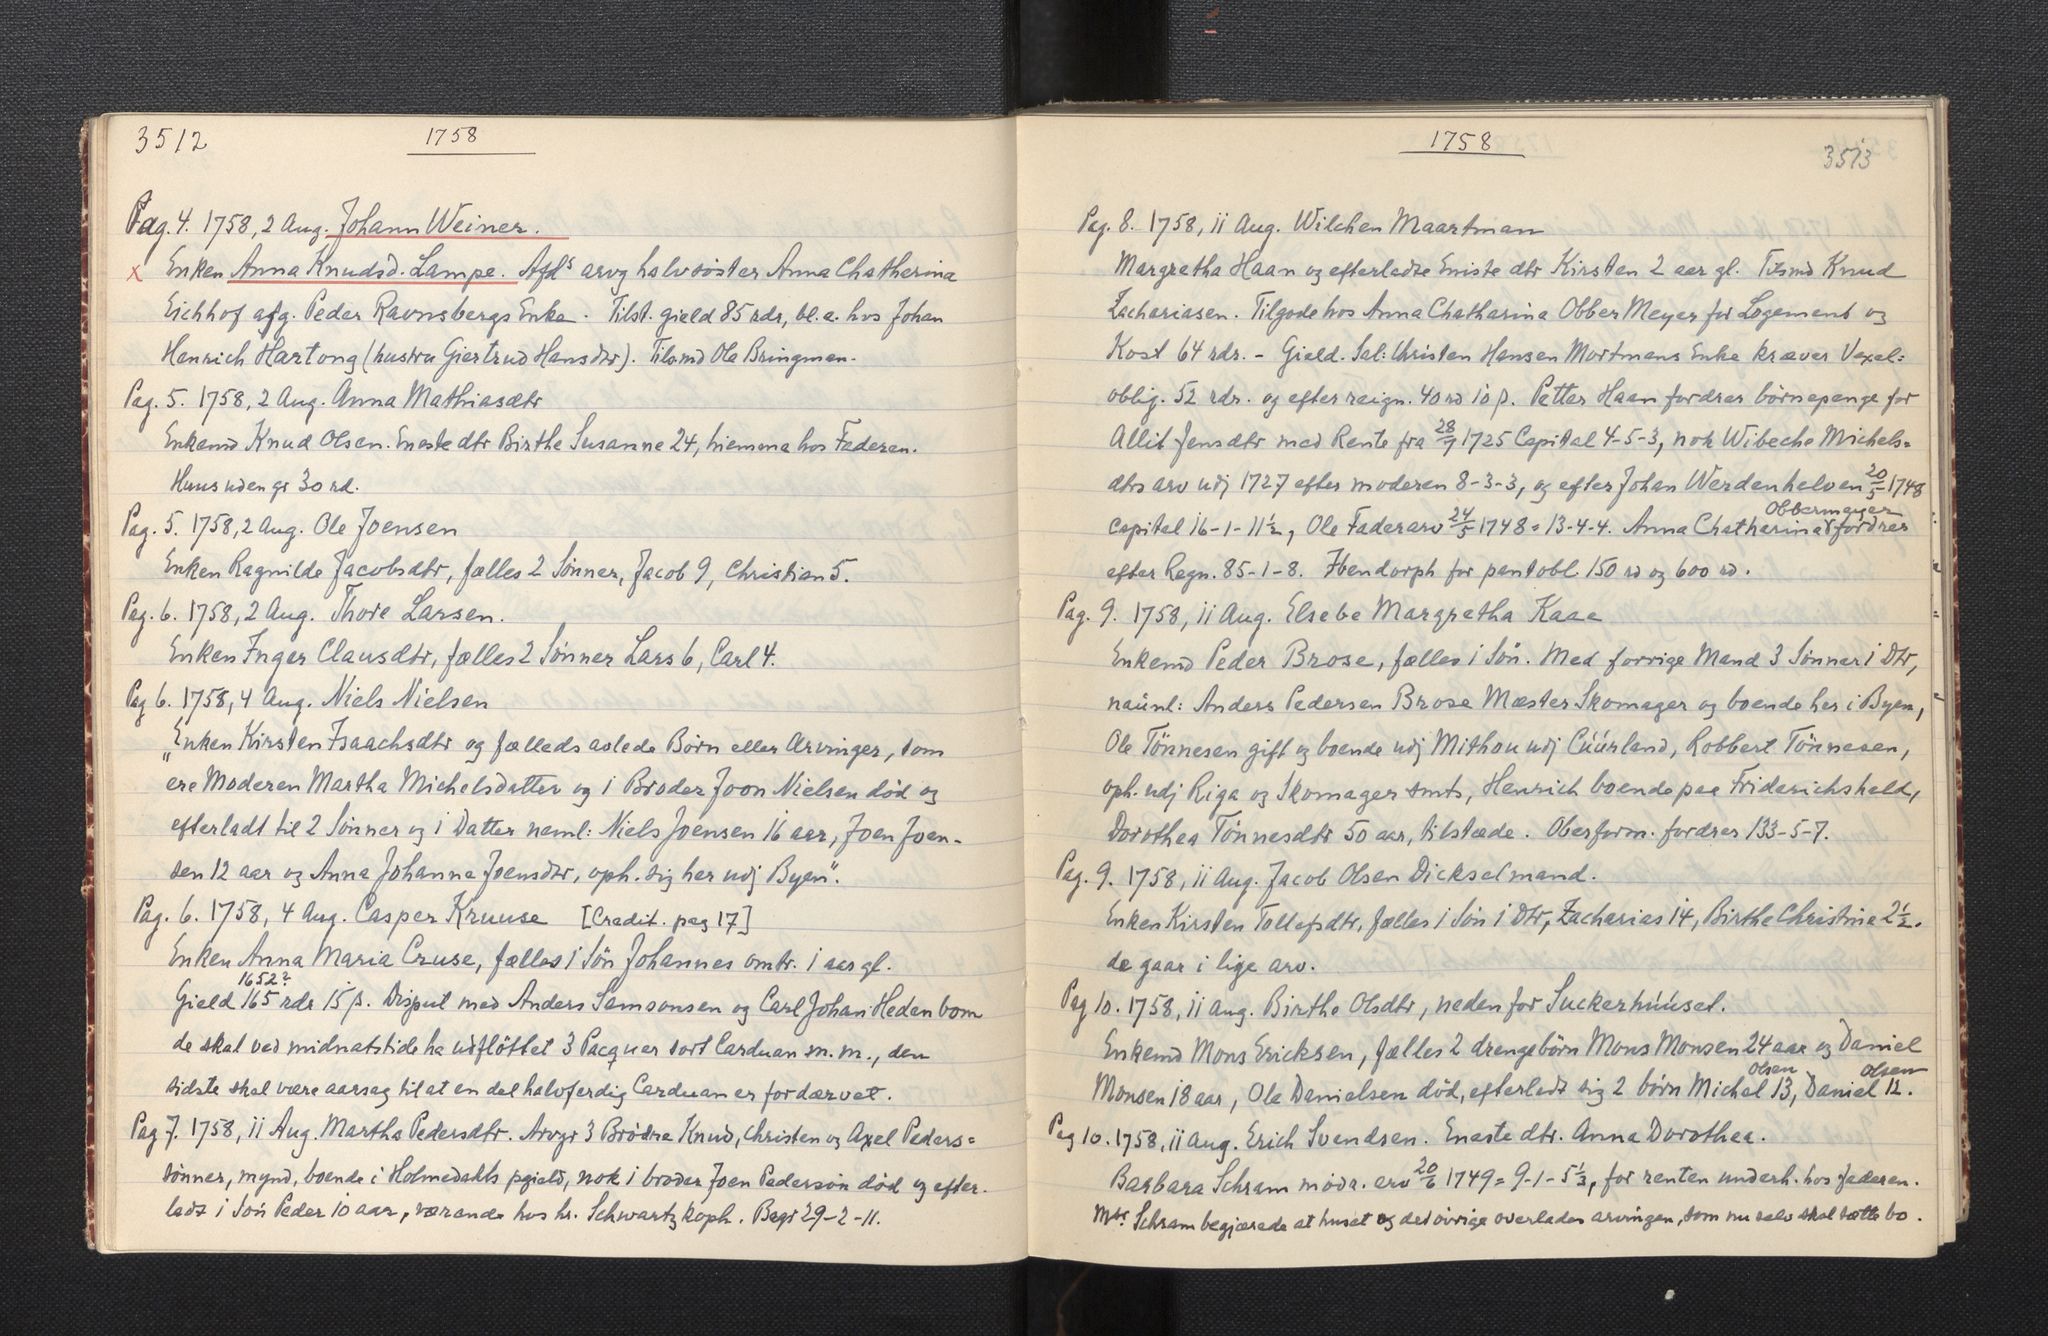 3512
1758
Pag. 4. 1758, 2 Aug. Johann Weiner.
x Enken Anna Knudsd. Lampe. Afds arvg halvsöster Anna Chatherina
Eichhof afg. Peder Ravnsbergs Enke. Tilst. gield 85 rdr, bl.a. hos Johan
Henrich Hartong (hustru Giertrud Hansdtr). Tilsmd Ole Bringman.
Pag. 5. 1758, 2 Aug. Anna Mathiasdtr
Enkemd Knud Olsen. Eneste dtr Birthe Susanne 24, hiemma hos Faderen.
Huus uden gr 30 rd.
Pag. 5. 1758, 2 Aug. Ole Joensen
Enken Ragnilde Jacobsdtr, fælles 2 Sönner, Jacob 9, Christian 5.
Pag. 6. 1758, 2 Aug. Thore Larsen.
Enken Inger Clausdtr, fælles 2 Sönner Lars 6, Carl 4.
Pag 6. 1758, 4 Aug. Niels Nielsen
"Enken Kirsten Isaachsdtr og fælleds avlede Börn eller Arvinger, som
ere Moderen Martha Michelsdatter og 1 Broder Joon Nielsen död og
efterladt til 2 Sönner og 1 Datter neml: Niels Joensen 16 aar, Joen Joen-
sen 12 aar og Anna Johanna Joensdtr, oph. sig her udj Byen".
Pag. 6. 1758, 4 Aug. Casper Kruuse [Credit. pag 17]
Enken Anna Maria Cruse, fælles 1 Sön Johannes omtr. 1 aar gl.
1652?
Gield 165 rdr 15 β. Disput med Anders Samsonsen og Carl Johan Hedenbom
de skal ved midnatstide ha udflöttet 3 Pacquer sort Carduan m.m., den
sidste skal være aarsag til at en del halvferdig Carduan er fordærvet.
Pag 7. 1758, 11 Aug. Martha Pedersdtr. Arvgr 3 Brödre Knud, Christen og Axel Peders=
sönner, mynd, boende i Holmedahls pgield, nok 1 broder Joen Pedersön död og efter-
ladt 1 Sön Peder 10 aar, værende hos hr. Schwartzkoph. Begr 29-2-11.
1758
3513
Pag. 8. 1758, 11 Aug. Wilchen Maartman
Margretha Haan og efterladte Eniste dtr Kirsten 2 aar gl. Tilsmd Knud
Zachariasen. Tilgode hos Anna Chatharina Obber Meyer for Logement og
Kost 64 rdr. - Gield. Sal: Christen Hansen Mortmans Enke kræver Vexel=
oblig. 52 rdr. og efter reign. 40 rd 10 β. Petter Haan fordrer börnepenge for
Allit Jensdtr med Rente fra 28/7 1725 Capital 4-5-3, nok Wibeche Michels=
dtrs arv udj 1727 efter moderen 8-3-3, og efter Johan Werdenhelven 20/5 1748
Obbermayer
Capital 16-1-11½, Ole Faderarv 24/5 1748 = 13-4-4. Anna Chatharina fordrer
efter Regn. 85-1-8. Ibendorph for pantobl. 150 rd og 600 rd.
Pag. 9. 1758, 11 Aug. Elsebe Margretha Kaae
Enkemd Peder Brose, fælles 1 Sön. Med forrige Mand 3 Sönner 1 Dtr,
naunl: Anders Pedersen Brose Mæster Skomager og boende her i Byen,
Ole Tönnesen gift og boende udj Mithou udj Cúúrland, Robbert Tönnesen,
oph. udj Riga og Skomager smts, Henrich boende paa Friderichshald,
Dorothea Tönnesdtr 50 aar, tilstæde. Oberform. fordrer 133-5-7.
Pag. 9. 1758, 11 Aug. Jacob Olsen Dickselmand.
Enken Kirsten Tollefsdtr, fælles 1 Sön 1 Dtr, Zacharias 14, Birthe Christine 2½.
de gaar i lige arv.
Pag 10. 1758, 11 Aug. Birthe Olsdtr, neden for Suckerhúúset.
Enkemd Mons Ericksen, fælles 2 drengebörn Mons Monsen 24 aar og Daniel
Olsen Olsen
Monsen 18 aar, Ole Danielsen död, efterladt sig 2 börn Michel 13, Daniel 12.
Pag 10. 1758, 11 Aug. Erich Svendsen. Eneste dtr. Anna Dorothea.
Barbara Schram mödr. arv 20/6 1749 = 9-1-5⅓, for renten underh. hos faderen.
Mstr Schram begjærede at huset og det övrige overlades arvingen, som nu selv skal sætte bo.